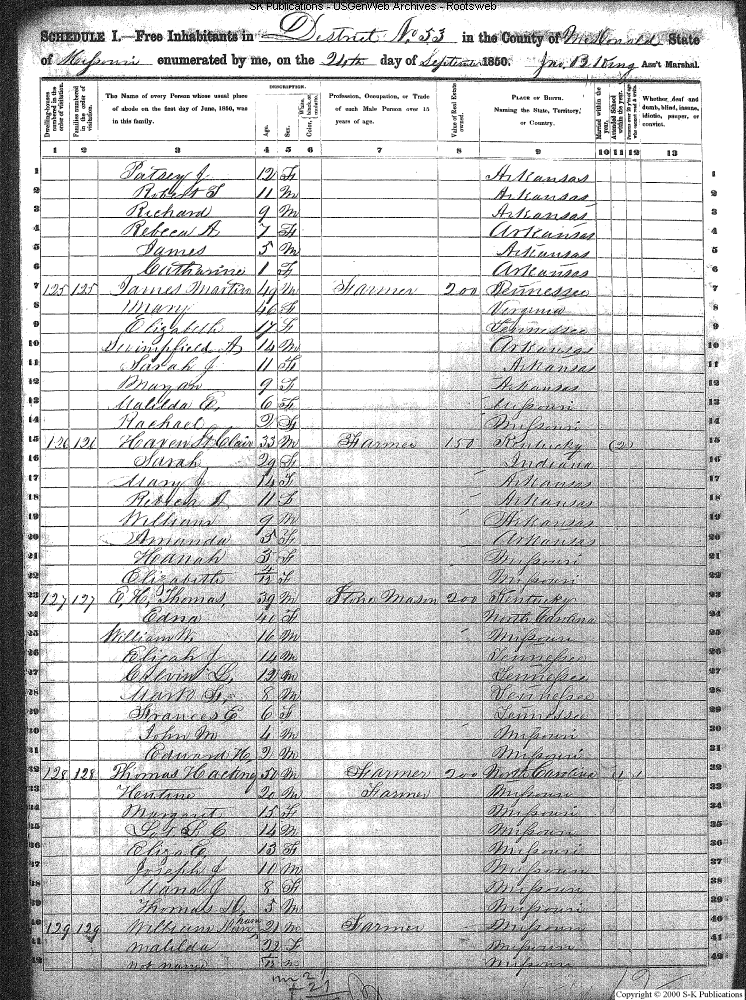 SK Publications - USGenWeb Archives - Rootsweb
SCHEDULE I.—Free Inhabitants in District No 53 in the County of McDonald State
of Missouri enumerated by me, on the 24th day of September 1850. Jno. B. King Ass't Marshal.
Dwelling-houses numbered in the order of visitation. Families numbered in the order of visitation. The Name of every Person whose usual place of abode on the first day of June, 1850, was in this family. DESCRIPTION. Age. Sex. Color Profession, Occupation, or Trade of each Male Person over 15 years of age. Value of Real Estate owned. PLACE OF BIRTH. Naming the State, Territory, or Country. Married within the year. Attended School within the year. Whether deaf and dumb, blind, insane, idiotic, pauper, or convict.
1 2 3 4 5 6 7 8 9 10 11 12 13
1 Patsey J 12 F Arkansas 1
2 Robert 11 M Arkansas 2
3 Richard 9 M Arkansas 3
4 Rebecca A 7 F Arkansas 4
5 James 5 M Arkansas 5
6 Catharine 1 F Arkansas 6
7 125 125 James Martin M Farmer 200 Tennessee 7
8 Mary 46 F Virginia 8
9 Elizabeth 17 F Tennessee 9
10 A 14 M Arkansas 10
11 Sarah J 11 F Arkansas 11
12 9 F Arkansas 12
13 Malilda E, 6 F Missouri 13
14 Rachael 2 F Missouri 14
15 126 126 Haven St Clair 33 M Farmer 150 Kentucky (2) 15
16 Sarah 29 F Indiana 16
17 Mary J 14 F Arkansas 17
18 A 11 F Arkansas 18
19 William 9 M Arkansas 19
20 Amanda 5 F Arkansas 20
21 Hanah 3 F Missouri 21
22 Elizabeth F Missouri 22
23 127 127 E, H, Thomas, 39 M Stone Mason 200 Kentucky 23
24 Edna 40 F North Carolina 24
25 William W. 16 M Missouri 25
26 Elijah J 14 M Tennessee 26
27 Calvin L, 12 M Tennessee 27
28 Mark 8 M Tennessee 28
29 Frances E 6 F Tennessee 29
30 John M 4 M Missouri 30
31 Edward H, 2 M Missouri 31
32 128 128 Thomas 50 M Farmer 200 North Carolina 1 1 32
33 20 M Farmer Missouri 33
34 Margaret 15 F Missouri 34
35 14 M Missouri 35
36 Eliza E, 13 F Missouri 36
37 Joseph J 10 M Missouri 37
38 8 F Missouri 38
39 Thomas 5 M Missouri 39
40 129 129 William 21 M Farmer Missouri 40
41 Malilda 22 F Missouri 41
42 not name M Missouri 42
Copyright © 2000 S-K Publications